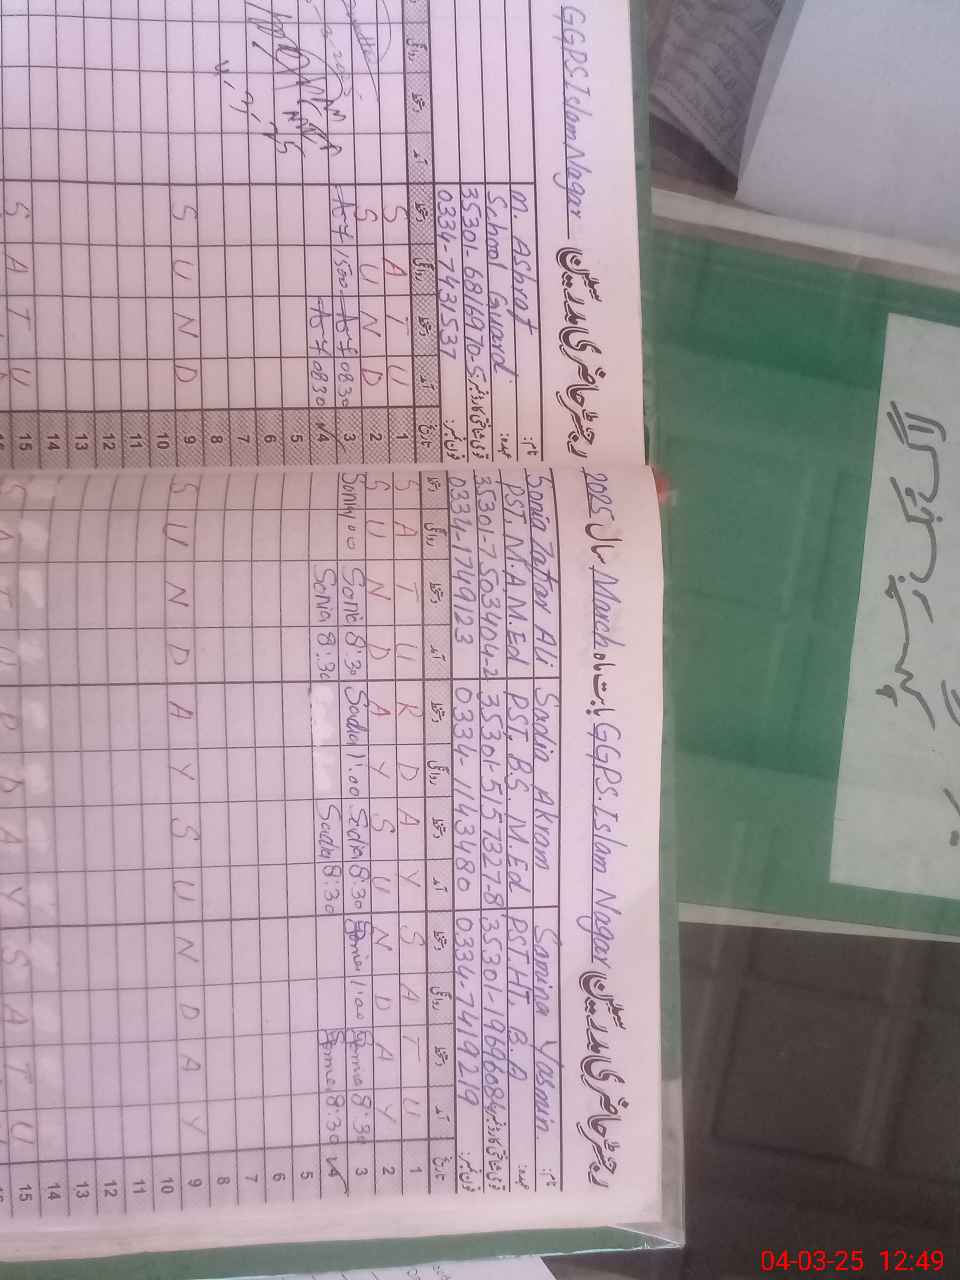 رجسٹر حاضری مدرسین GGPS. Islam Nagar بابت ماہ March سال 2025
نام: Samina Yasmin Sadia Akram Sonia Zafar Ali
عہدہ: PST. HT, B.A PST, B.S. M.Ed PST, M.A M.Ed
قومی شناختی کارڈ نمبر: 35301-1969608-4 35301-5157327-8 35301-7503404-2
فون نمبر: 0334-7419219 0334-1143480 0334-1749123
تاریخ آمد دستخط روانگی دستخط آمد دستخط روانگی دستخط آمد دستخط روانگی دستخط
1 S A T U R D A Y S A T U
2 S U N D A Y S U N D A Y
3 8:30 1:00 Sadia 8:30 Sadia 1:00 Sonia 8:30 Sonia 1:00
4 8:30 Sadia 8:30 Sonia 8:30
5
6
7
8
9 S U N D A Y S U N D A Y
10
11
12
13
14
15 S A T U R D A Y S A T U
رجسٹر حاضری مدرسین GGPS. Islam Nagar
نام: M. Ashraf
عہدہ: School Guard
قومی شناختی کارڈ نمبر: 35301-6816970-5
فون نمبر: 0334-7431537
تاریخ آمد دستخط روانگی دستخط آمد دستخط روانگی
1 S A T U
2 S U N D
3 0830 1500
4 0830
5
6
7
8
9 S U N D
10
11
12
13
14
15 S A T U
لاگ بک
04-03-25 12:49